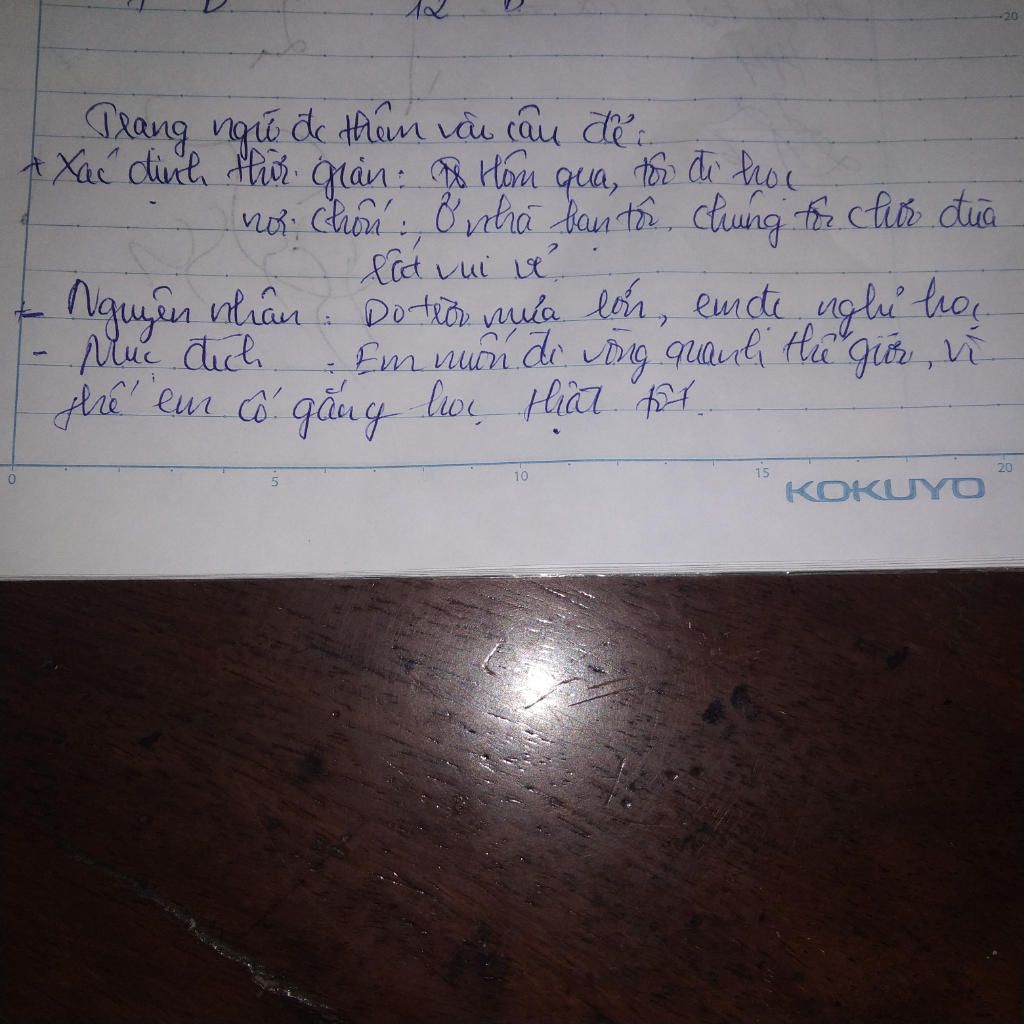 12
20
Trạng ngữ đc thêm vào câu để:
+ Xác định thời gian: Hôm qua, tôi đi học
nơi chốn: Ở nhà bạn tôi, chúng tôi chơi đùa
rất vui vẻ
- Nguyên nhân: Do trời mưa lớn, em đc nghỉ học
- Mục đích : Em muốn đi vòng quanh thế giới, vì
thế em cố gắng học thật tốt.
0 5 10 15 20
KOKUYO